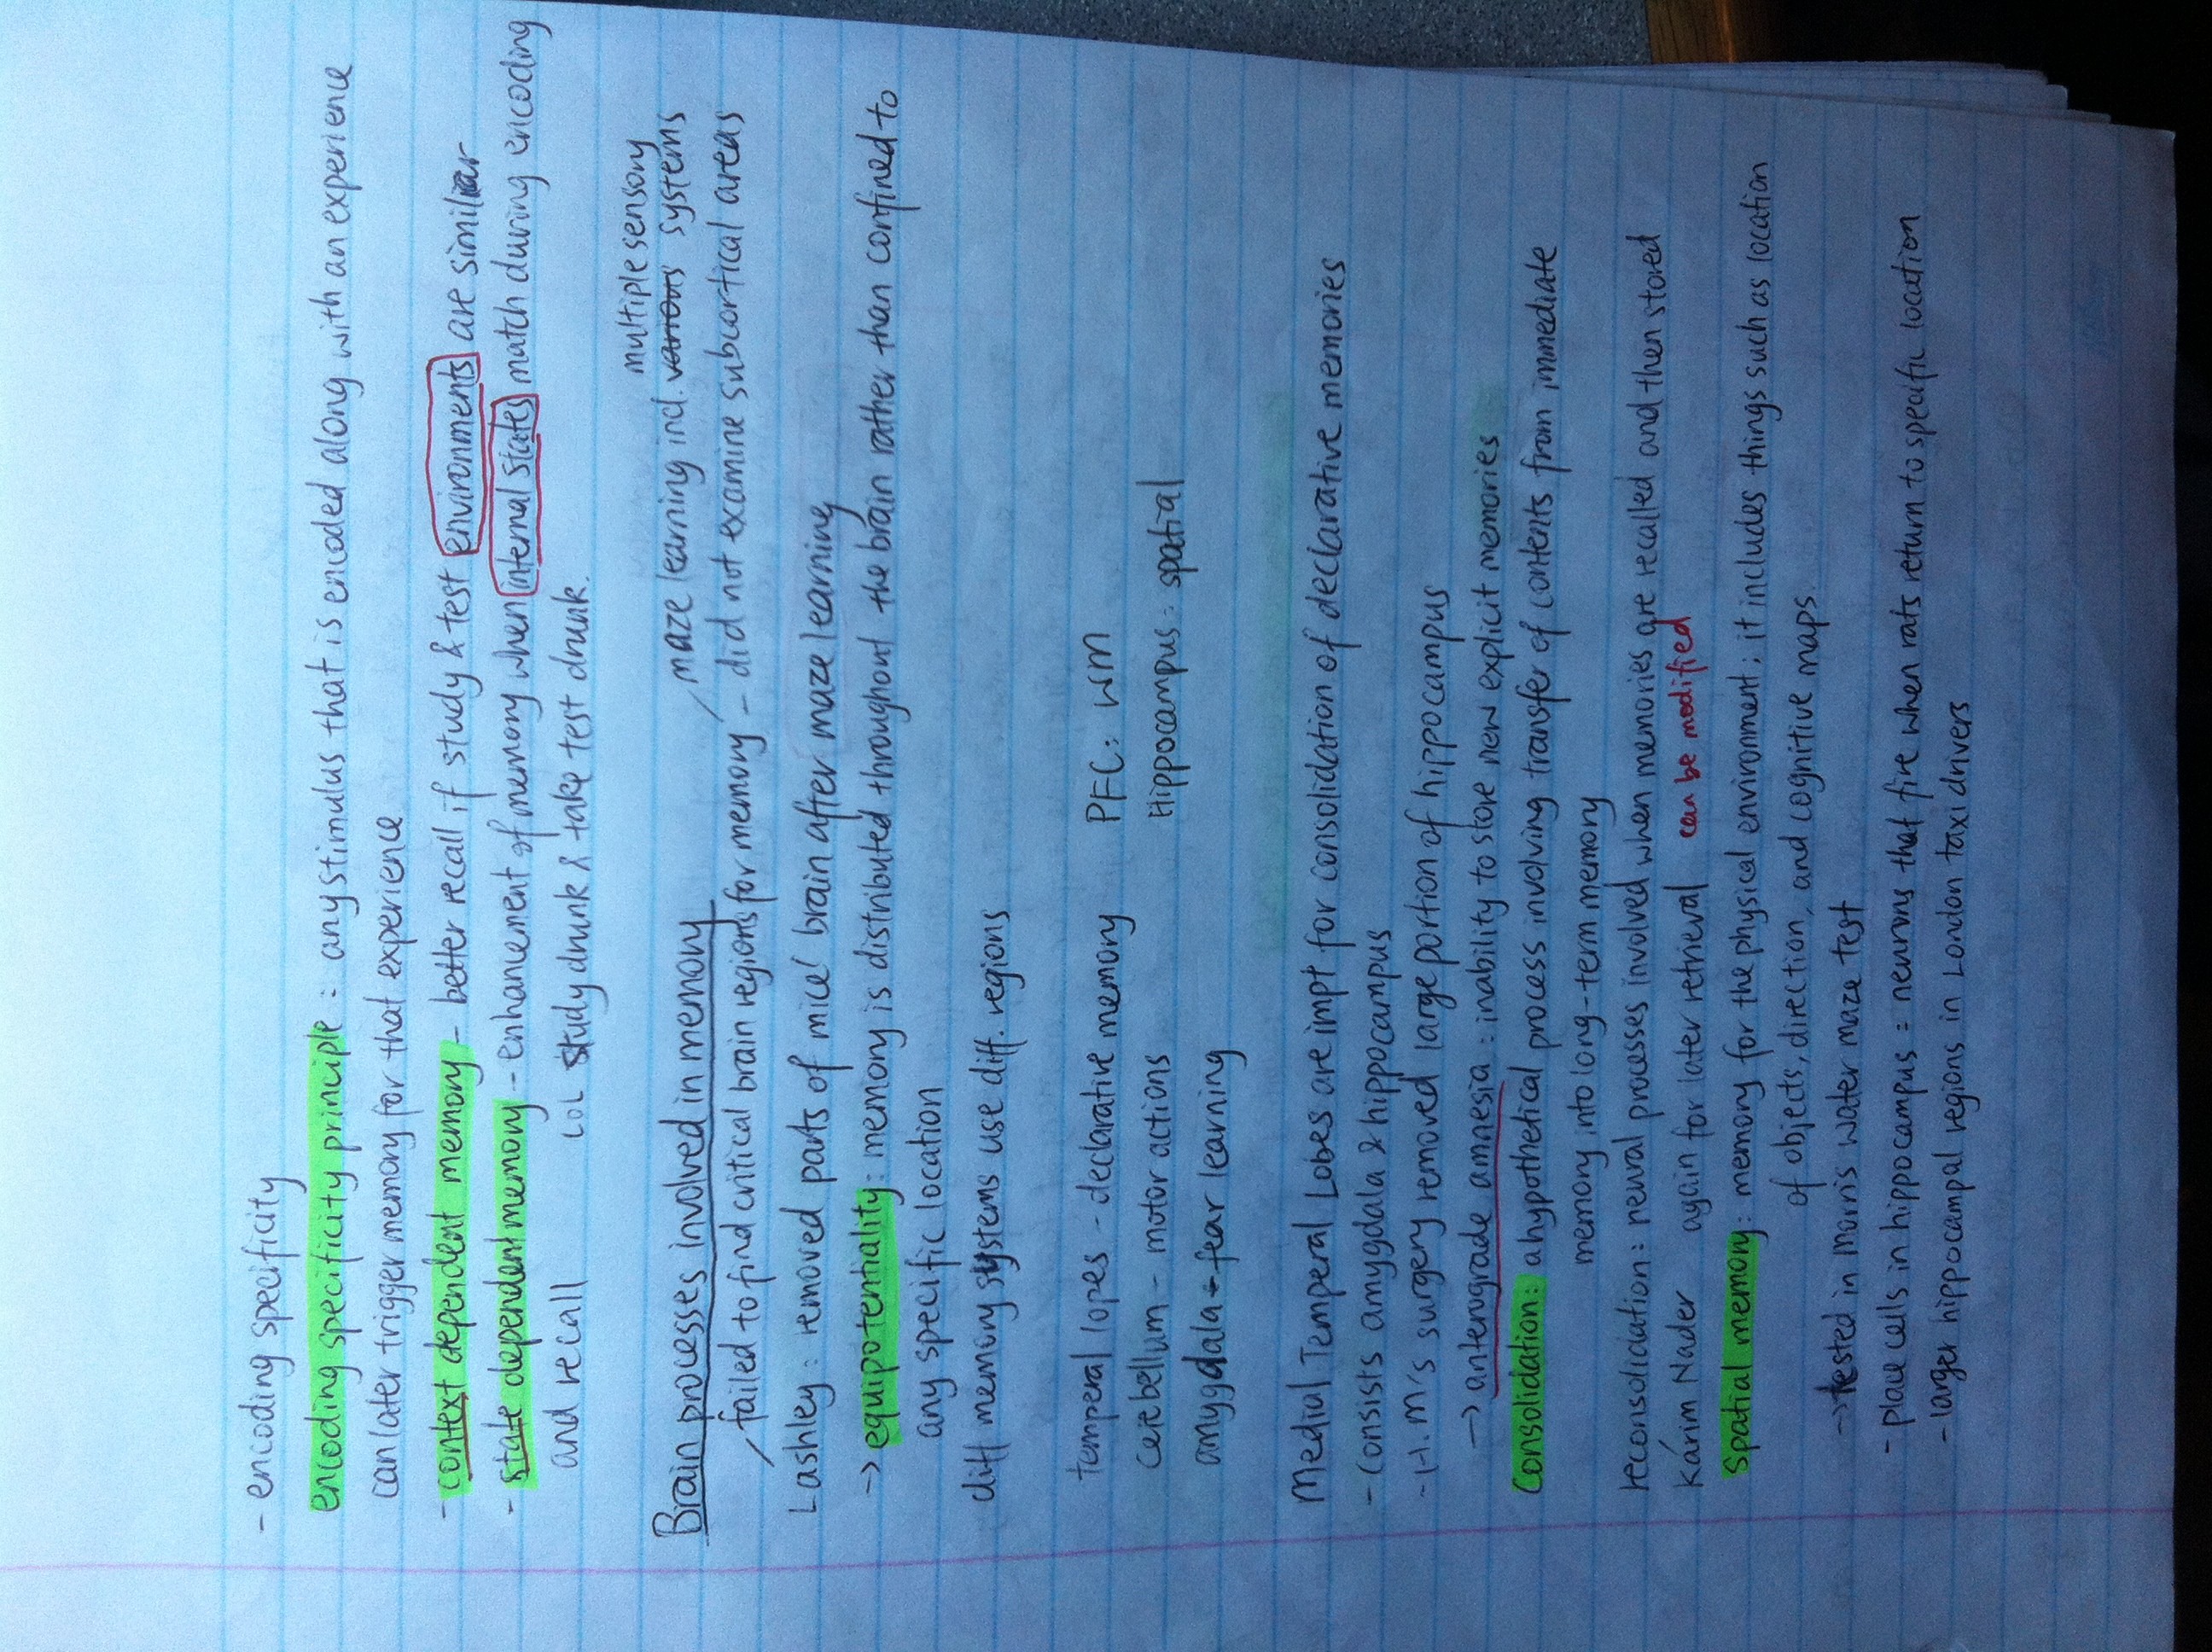 - encoding specificity
encoding specificity principle : any stimulus that is encoded along with an experience
can later trigger memory for that experience
- context dependent memory - better recall if study & test environments are similar
- state dependent memory - enhancement of memory when internal states match during encoding
and recall LOL study drunk & take test drunk.
multiple sensory
Brain processes involved in memory maze learning incl. various systems
failed to find critical brain regions for memory - did not examine subcortical areas
Lashley : removed parts of mice' brain after maze learning
→ equipotentiality : memory is distributed throughout the brain rather than confined to
any specific location
diff memory systems use diff. regions
temperal lopes - declarative memory PFC : WM
cerebellum - motor actions Hippocampus : spatial
amygdala - fear learning
Medial Temperal Lobes are impt for consolidation of declarative memories
- consists amygdala & hippocampus
- H.M's surgery removed large portion of hippocampus
→ anterograde amnesia : inability to store new explicit memories
Consolidation : a hypothetical process involving transfer of contents from immediate
memory into long-term memory
reconsolidation : neural processes involved when memories are recalled and then stored
Karim Nader again for later retrieval can be modified
Spatial memory : memory for the physical environment ; it includes things such as location
of objects, direction, and cognitive maps.
→ tested in morris water maze test
- place cells in hippocampus : neurons that fire when rats return to specific location
- larger hippocampal regions in London taxi drivers